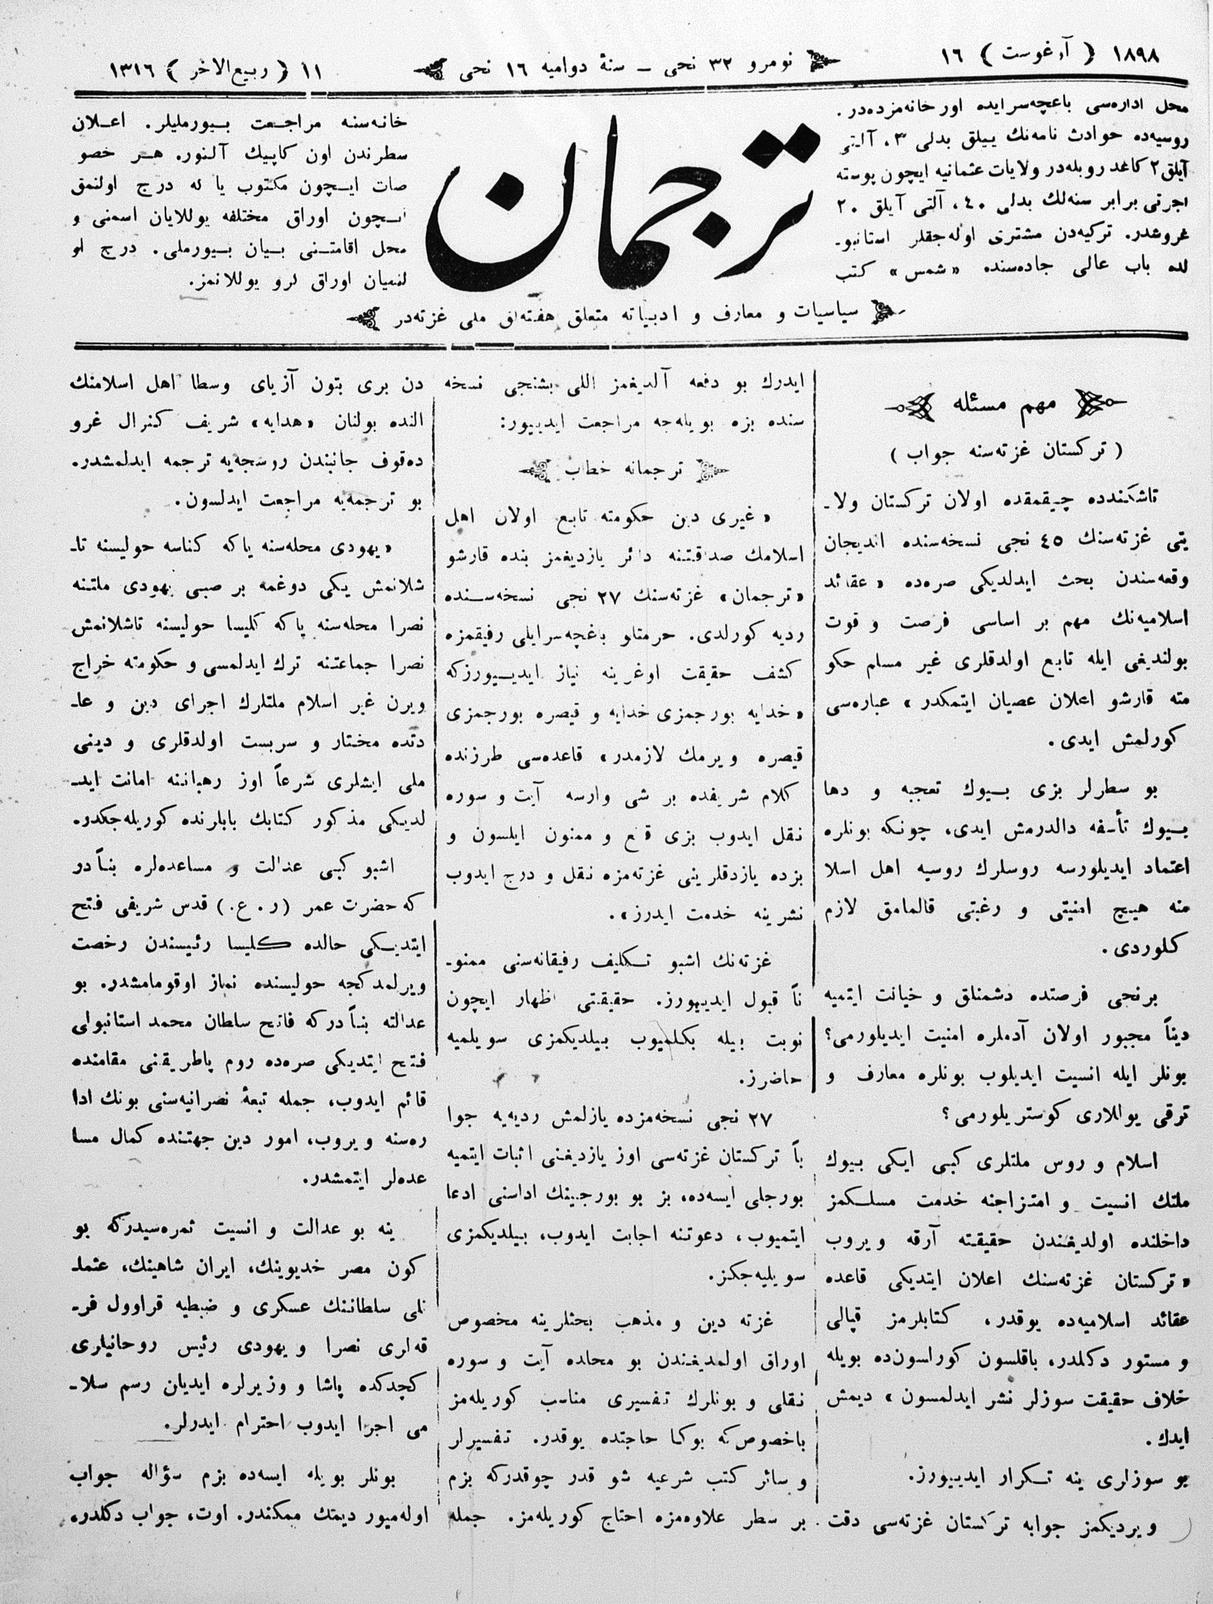 ١٨٩٨ ( آوغوست ) ١٦
نومرو ٣٢ نجی ـ سنهٔ دوامیه ١٦ نجی
١١ ( ربیع الاخر ) ١٣١٦
محل اداره‌سی باغچه‌سرایده اورخانه‌مزده‌در.
روسیه‌ده حوادث نامه‌نك ییلق بدلی ٣، آلتی
آیلق ٢ كاغد روبله‌در ولایات عثمانیه ایچون پوسته
اجرتی برابر سنه‌لك بدلی ٤٠، آلتی آیلق ٢٠
غروشدر. تركیه‌دن مشتری اوله‌جقلر استانبو-
لده باب عالی جاده‌سنده «شمس» كتب
ترجمان
خانه‌سنه مراجعت بیورملیلر. اعلان
سطرندن اون كاپیك آلنور. هر خصو
صات ایچون مكتوب یا له درج اولنمق
ایچون اوراق مختلفه یوللایان اسمنی و
محل اقامتنی بیان بیورملی. درج او
لنمیان اوراق كرو یوللانمز.
سیاسیات و معارف و ادبیاته متعلق هفته‌لق ملی غزته‌در
مهم مسئله
( تركستان غزته‌سنه جواب )
تاشكندده چیقمقده اولان تركستان ولا-
یتی غزته‌سنك ٤٥ نجی نسخه‌سنده اندیجان
وقعه‌سندن بحث ایدلدیكی صره‌ده «عقائد
اسلامیه‌نك مهم بر اساسی فرصت و قوت
بولندیغی ایله تابع اولدقلری غیر مسلم حكو
مته قارشو اعلان عصیان ایتمكدر» عباره‌سی
كورلمش ایدی.
بو سطرلر بزی بیوك تعجبه و دها
بیوك تأسفه دالدرمش ایدی، چونكه بونلره
اعتماد ایدیلورسه روسلرك روسیه اهل اسلا
منه هیچ امنیتی و رغبتی قالمامق لازم
كلوردی.
برنجی فرصتده دشمنلق و خیانت ایتمیه
دیناً مجبور اولان آدملره امنیت ایدیلورمی؟
بونلر ایله انسیت ایدیلوب بونلره معارف و
ترقی یوللاری كوستریلورمی؟
اسلام و روس ملتلری كبی ایكی بیوك
ملتك انسیت و امتزاجنه خدمت مسلكمز
داخلنده اولدیغندن حقیقته آرقه ویروب
«تركستان غزته‌سنك اعلان ایتدیكی قاعده
عقائد اسلامیه‌ده یوقدر، كتابلرمز قپالی
و مستور دكلدر، باقلسون كوراسون‌ده بویله
خلاف حقیقت سوزلر نشر ایدلمسون» دیمش
ایدك.
بو سوزلری ینه تكرار ایدییورز.
ویردیكمز جوابه تركستان غزته‌سی دقت
ایدرك بو دفعه آلدیغمز اللی بشنجی نسخه
سنده بزه بویله‌جه مراجعت ایدییور:
ترجمانه خطاب
«غیری دین حكومته تابع اولان اهل
اسلامك صداقتنه دائر یازدیغمز بنده قارشو
«ترجمان» غزته‌سنك ٢٧ نجی نسخه‌سنده
ردیه كورلدی. حرمتلو باغچه‌سرایلی رفیقمزه
كشف حقیقت اوغرینه نیاز ایدییورزكه
«خدایه بورجمزی خدایه و قیصره بورجمزی
قیصره ویرمك لازمدر» قاعده‌سی طرزنده
كلام شریفده بر شی وارسه آیت و سوره
نقل ایدوب بزی قنع و ممنون ایلسون و
بزده یازدقلرینی غزته‌مزه نقل و درج ایدوب
نشرینه خدمت ایدرز».
غزته‌نك اشبو تكلیف رفیقانه‌سنی ممنو-
ناً قبول ایدییورز. حقیقتی اظهار ایچون
نوبت بیله بكلمیوب بیلدیكمزی سویلمیه
حاضرز.
٢٧ نجی نسخه‌مزده یازلمش ردیه‌یه جوا
باً تركستان غزته‌سی اوز یازدیغنی اثبات ایتمیه
بورجلی ایسه‌ده، بز بو بورجینك اداسنی ادعا
ایتمیوب، دعوتنه اجابت ایدوب، بیلدیكمزی
سویلیه‌جكز.
غزته دین و مذهب بحثلرینه مخصوص
اوراق اولمدیغندن بو محلده آیت و سوره
نقلی و بونلرك تفسیری مناسب كوریله‌مز
باخصوص‌كه بوكا حاجتده یوقدر. تفسیرلر
و سائر كتب شرعیه شو قدر چوقدركه بزم
بر سطر علاوه‌مزه احتاج كوریله‌مز. جمله
دن بری بتون آزیای وسطا اهل اسلامنك
النده بولنان «هدایه» شریف كنرال غرو
ده‌قوف جانبندن روسجه‌یه ترجمه ایدلمشدر.
بو ترجمه‌یه مراجعت ایدلسون.
«یهودی محله‌سنه یاكه كناسه حولیسنه تا-
شلانمش یكی دوغمه بر صبی یهودی ملتنه
نصرا محله‌سنه یاكه كلیسا حولیسنه تاشلانمش
نصرا جماعتنه ترك ایدلمسی و حكومته خراج
ویرن غیر اسلام ملتلرك اجرای دین و عا-
دتده مختار و سربست اولدقلری و دینی
ملی ایشلری شرعاً اوز رهباننه امانت اید-
لدیكی مذكور كتابك بابلرنده كوریله‌جكدر.
اشبو كبی عدالت و مساعده‌لره بناً در
كه حضرت عمر (ر.ع.) قدس شریفی فتح
ایتدیكی حالده كلیسا رئیسندن رخصت
ویرلمدكجه حولیسنده نماز اوقومامشدر. بو
عدالته بناً دركه فاتح سلطان محمد استانبولی
فتح ایتدیكی صره‌ده روم پاطریقنی مقامنده
قائم ایدوب، جمله تبعهٔ نصرانیه‌سنی بونك ادا
ره‌سنه ویروب، امور دین جهتنده كمال مسا
عده‌لر ایتمشدر.
ینه بو عدالت و انسیت ثمره‌سیدركه بو
كون مصر خدیوینك، ایران شاهینك، عثما-
نلی سلطاننك عسكری و ضبطیه قراوول فر-
قه‌لری نصرا و یهودی رئیس روحانیلری
كچدكده پاشا و وزیرلره ایدیان رسم سلا-
می اجرا ایدوب احترام ایدرلر.
بونلر بویله ایسه‌ده بزم سؤاله جواب
اوله‌میور دیمتك ممكندر. اوت، جواب دكلدر،